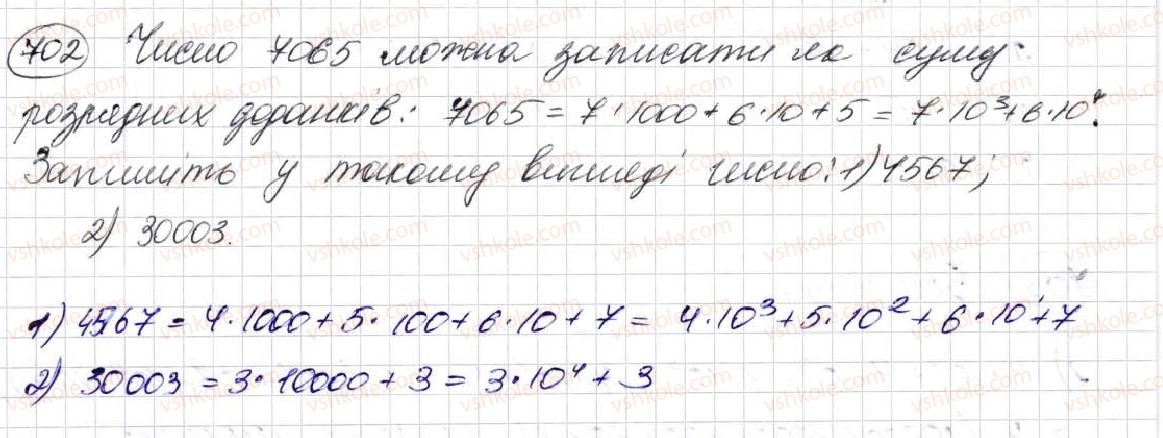 702 Число 7065 можна записати як суму
розрядних доданків: 7065 = 7·1000 + 6·10 + 5 = 7·10³ + 6·10¹.
Запишіть у такому вигляді число: 1) 4567;
2) 30003.
1) 4567 = 4·1000 + 5·100 + 6·10 + 7 = 4·10³ + 5·10² + 6·10¹ + 7
2) 30003 = 3·10000 + 3 = 3·10⁴ + 3